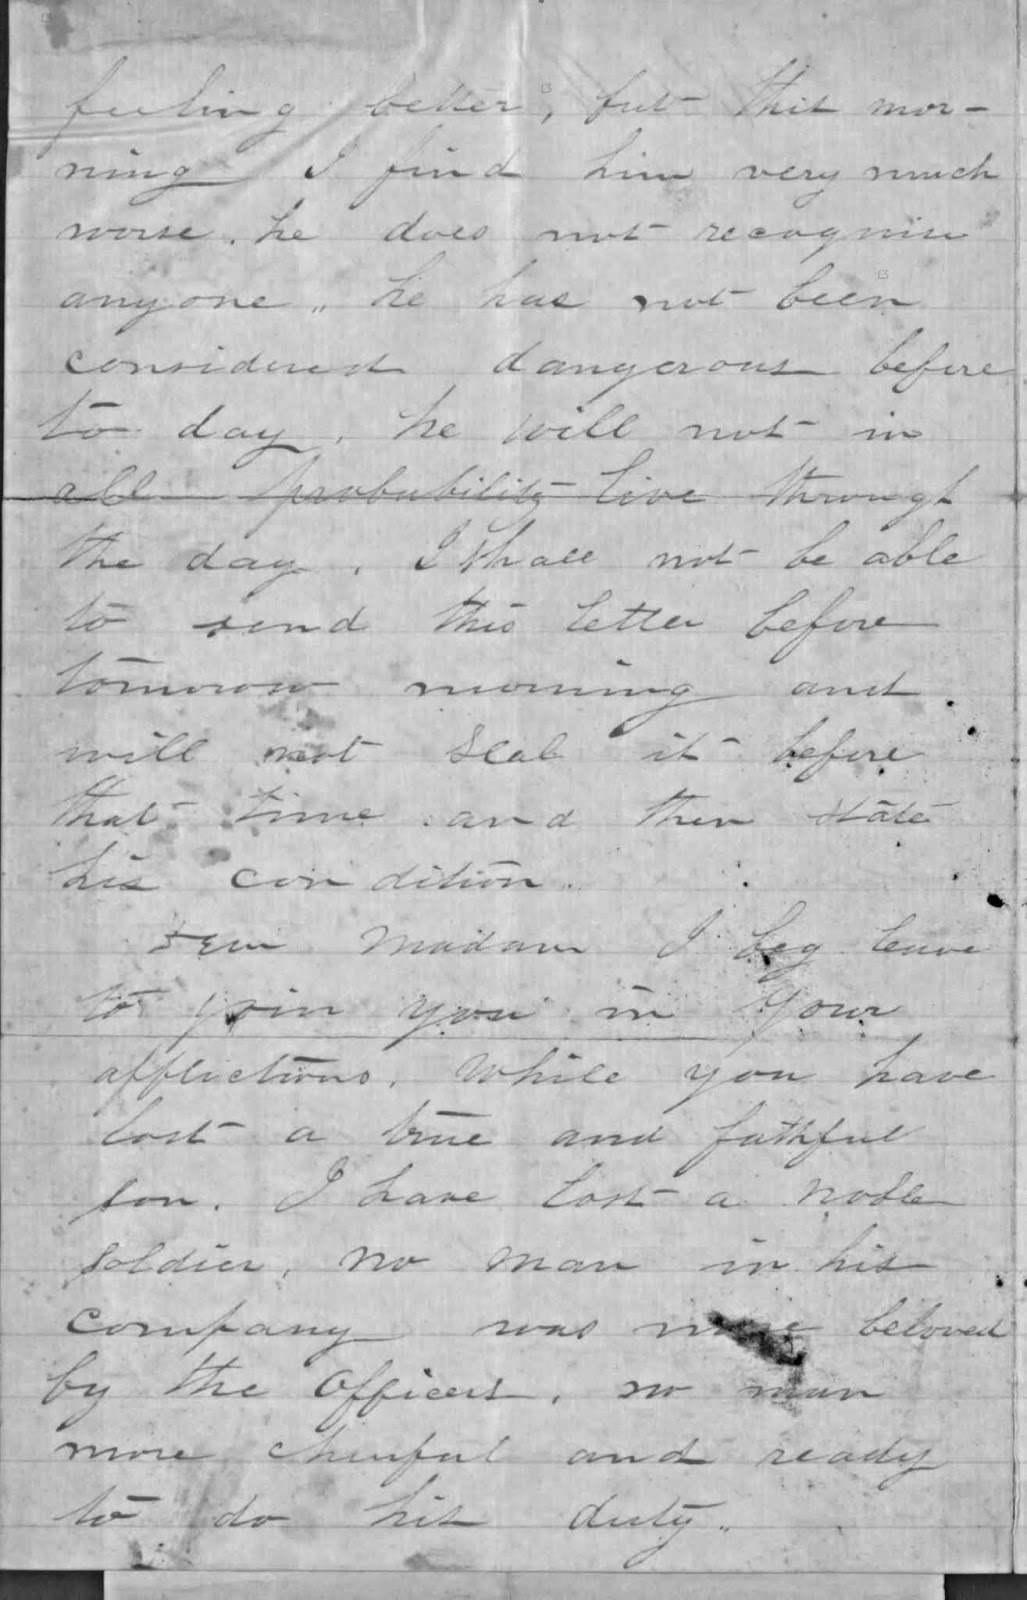 feeling better, but this mor-
ning I find him very much
worse. he does not recognise
anyone,, he has not been
considered dangerous before
to day, he will not in
all probability live through
the day. I shall not be able
to send this letter before
tomorow morning and
will not seal it before
that time and then state
his condition.
Madam I beg leave
to join you in your
afflictions. While you have
lost a true and fathful
son. I have lost a noble
soldier, no man in his
company was more beloved
by the Officers, no man
more cheerful and ready
to do his duty..